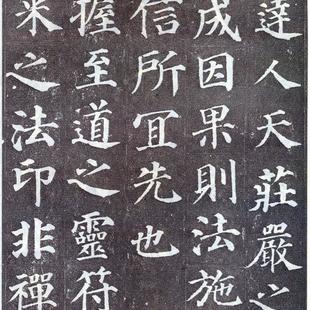 達人天莊嚴之
成因果則法施
信所冝先也
握至道之靈符
来之法印非禪